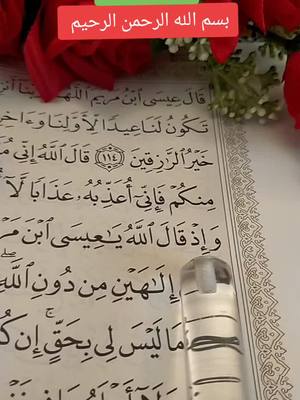 بسم الله الرحمن الرحيم
قَالَ عِيسَى ٱبْنُ مَرْيَمَ ٱللَّهُمَّ
تَكُونُ لَنَا عِيدًا لِّأَوَّلِنَا وَءَاخِ
خَيْرُ ٱلرَّٰزِقِينَ ١١٤ قَالَ ٱللَّهُ إِنِّى
مِنكُمْ فَإِنِّىٓ أُعَذِّبُهُۥ عَذَابًا لَّآ
وَإِذْ قَالَ ٱللَّهُ يَٰعِيسَى ٱبْنَ مَرْ
إِلَٰهَيْنِ مِن دُونِ ٱللَّهِ
مَا لَيْسَ لِى بِحَقٍّ إِن كُ